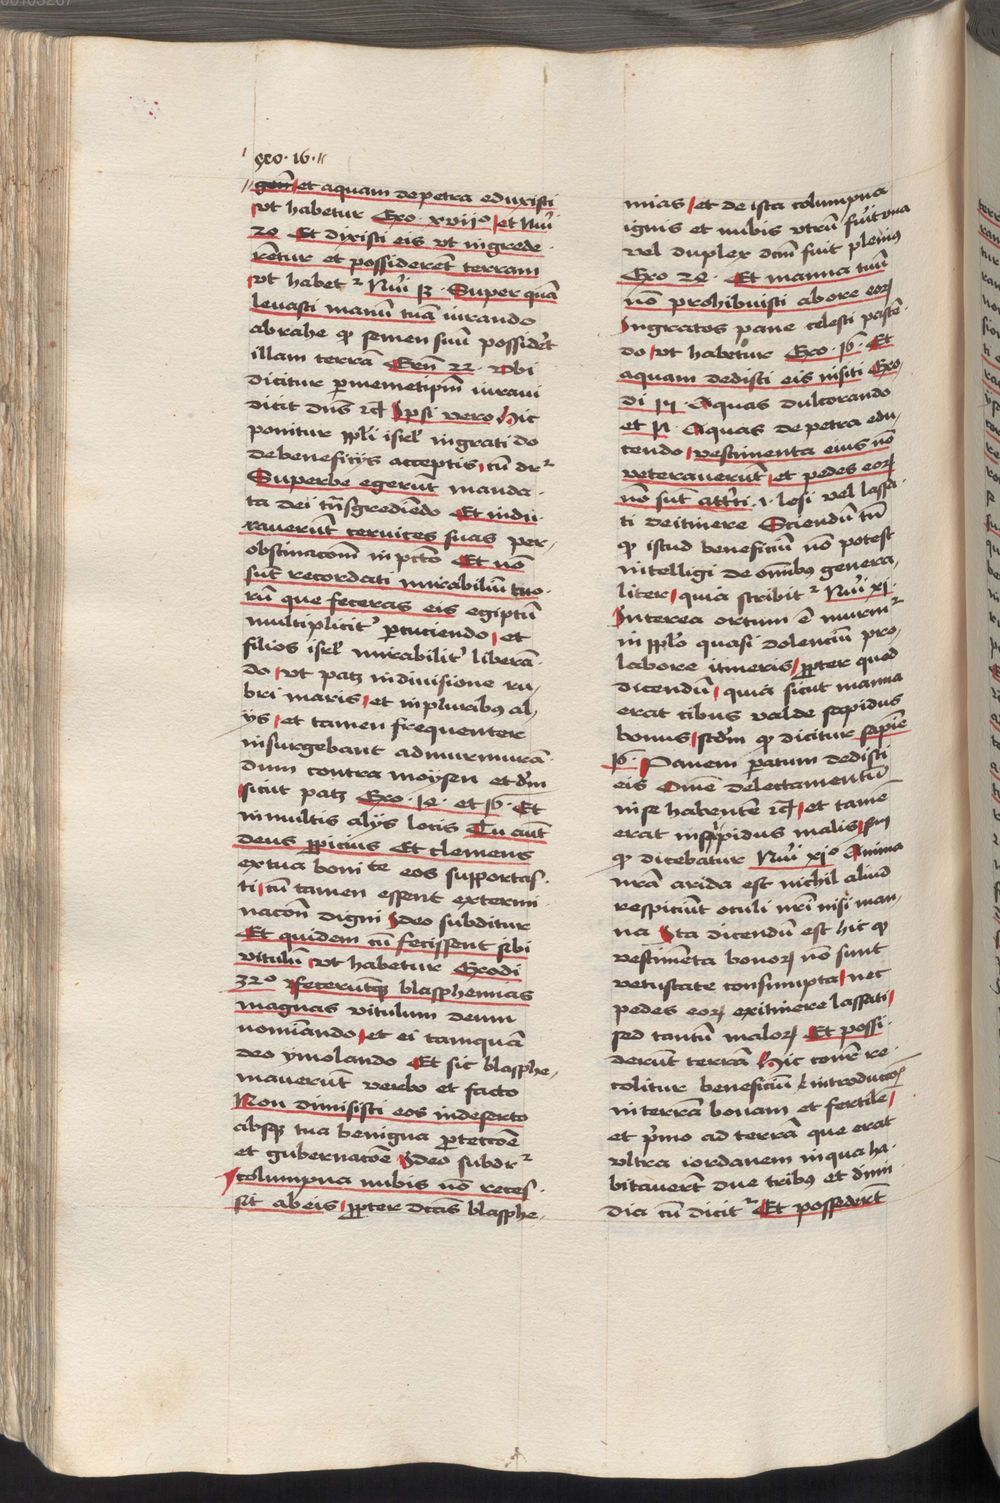 00103267
exo · 16 ·
et aquam de petra eduxisti
vt habetur Exo · xvijº et Nūi
20 Et dixisti eis vt ingrede
rentur et possiderēt terram
vt habet᷑ Nūi 13 · Super quā
leuasti manū tuā iurando
abrahe qꝫ semen suū possidet
illam terrā Gen̄ 22 · vbi
dicitur p memetipm̄ iuraui
dicit dn̄s ꝛc̄ Ipsi vero hic
ponitur ppli isrl̄ ingrati do
de beneficijs acceptis cū dr᷑
Superbe egerūt manda
ta dei tn̄sgrediēdo Et indu
rauerūt ceruices suas per
obstinacōm in pctō Et nō
sūt recordati mirabiliū tuo
rū que feceras eis egiptū
multiplicit᷑ pcuciendo et
filios isrl̄ mirabilit᷑ liberā
do vt patꝫ in diuisione ru
bri maris et in pluribꝫ al
ijs et tamen frequenter
insurgebant ad murmurā
dum contra moysen et dm̄
sicut patꝫ Exo · 14 · et 16 · Et
in multis alijs locis Tu aūt
deus ppicius Et clemens
ex tua boni te eos supportas
ti cū tamen essent extermi
nacōn digni Ideo subditur
Et quidem cū fecissent sibi
vitulū vt habetur Exodi
32º fecerūtqꝫ blasphemias
magnas vitulum deum
nomiando et ei tamquā
deo ymolando Et sic blasphe
mauerūt verbo et facto
Non dimisisti eos in deserto
absqꝫ tua benigna ptectōe
et gubernacōe Ideo subdr᷑
columpna nubis nō reces
sit ab eis ppter dictās blasphe
mias et de ista columpna
ignis et nubis vtrū fuit vna
vel duplex dcm̄ fuit plenius
Exo 24 · Et manna tuū
nō prohibuisti ab ore eoꝝ
Ingratos pane celesti pascē
do vt habetur Exo · 16 · Et
aquam dedisti eis in siti Exo
di 15 · Aquas dulcorando
et 17 · Aquas de petra edu
cendo vestimenta eius nō
veterauerūt et pedes eoꝝ
nō sūt attriti · i · lesi vel lassa
ti de itinere Sciendū tn̄
qꝫ istud beneficiū nō potest
intelligi de om̄ibꝫ genera
liter quia scribit᷑ Nūi xj
Interea ortum ē murmr᷑
in pplo quasi dolenciū pro
labore itineris ppter quod
dicendū quia sicut manna
erat cibus valde sapidus
bonus scdm̄ qꝫ dicitur sapiē
16 · Panem paratum dedisti
eis Omē delectamentū
in se habentē ꝛc̄ et tamē
erat insipidus malis
qꝫ dicebatur Nūi xjº Anima
nrā arida est nichil aliud
respiciūt oculi nrī nisi man
na Ita dicendū est hic qꝫ
vestimēta bonoꝝ nō sunt
vetustate consumpta nec
pedes eoꝝ ex itinere lassati
sed tantū maloꝝ Et possi
derūt terrā Hic re
colitur beneficiū introductōis
in terrā bonam et fertilē
et pmo ad terrā que erat
vltra iordanem in qua ha
bitauerūt due tribus et dimi
dia cū dicit᷑ Et possederūt